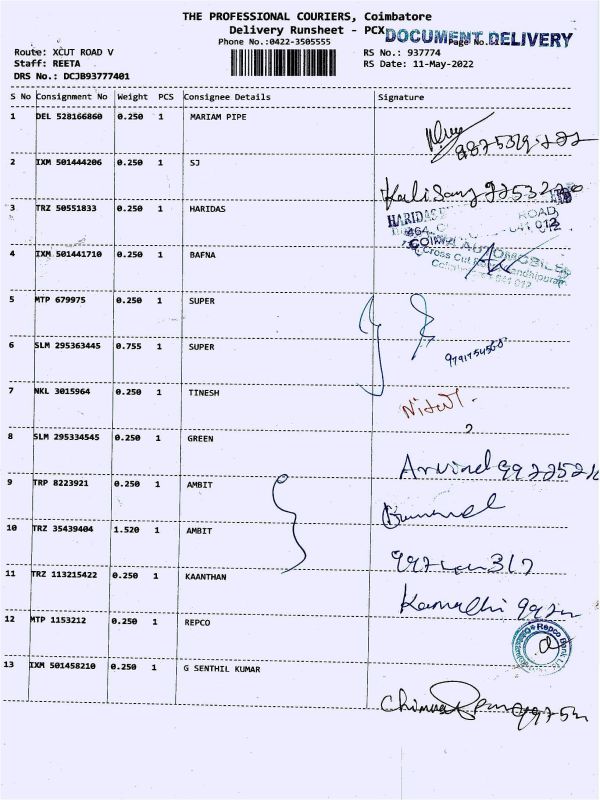 THE PROFESSIONAL COURIERS, Coimbatore
Delivery Runsheet - PCX
DOCUMENT DELIVERY
Phone No.:0422-3505555
Page No.
Route: XCUT ROAD V
RS No.: 937774
Staff: REETA
RS Date: 11-May-2022
DRS No.: DCJB93777401
S No Consignment No Weight PCS Consignee Details Signature
1 DEL 528166860 0.250 1 MARIAM PIPE
2 IXM 501444206 0.250 1 SJ
3 TRZ 50551833 0.250 1 HARIDAS
HARIDAS ROAD,
641 012
4 IXM 501441710 0.250 1 BAFNA
AUTOMOBILES
Cross Cut Gandhipuram
641 012
5 MTP 679975 0.250 1 SUPER
6 SLM 295363445 0.755 1 SUPER
7 NKL 3015964 0.250 1 TINESH
8 SLM 295334545 0.250 1 GREEN
Arvind
9 TRP 8223921 0.250 1 AMBIT
10 TRZ 35439404 1.520 1 AMBIT
11 TRZ 113215422 0.250 1 KAANTHAN
12 MTP 1153212 0.250 1 REPCO
Repco Bank
13 IXM 501458210 0.250 1 G SENTHIL KUMAR